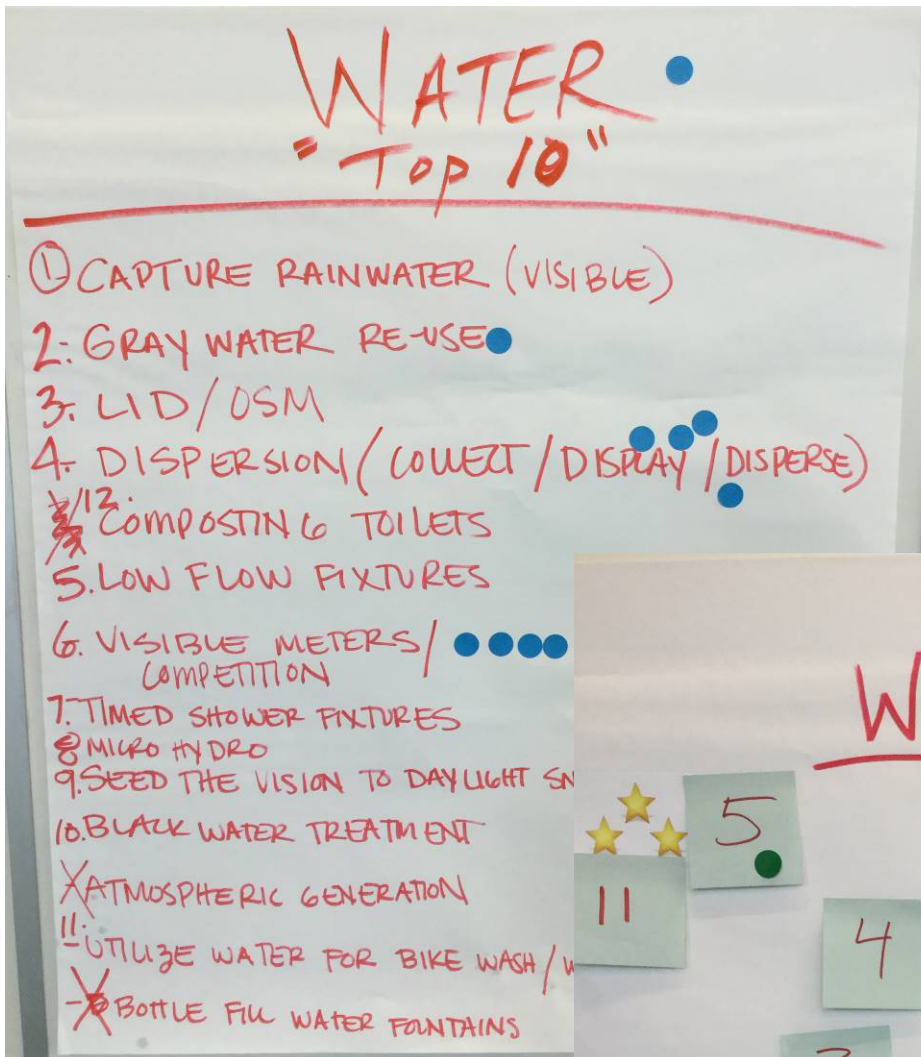 WATER
"Top 10"
1. CAPTURE RAINWATER (VISIBLE)
2. GRAY WATER RE-USE
3. LID/OSM
4. DISPERSION (COLLECT/DISPLAY/DISPERSE)
12. COMPOSTING TOILETS
5. LOW FLOW FIXTURES
6. VISIBLE METERS/
COMPETITION
7. TIMED SHOWER FIXTURES
8 MICRO HYDRO
9. SEED THE VISION TO DAYLIGHT SN
10. BLACK WATER TREATMENT
X ATMOSPHERIC GENERATION
11. UTILIZE WATER FOR BIKE WASH/W
BOTTLE FILL WATER FOUNTAINS
W
5
11
4